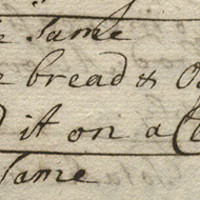 same
bread & O
it on a Cl
Same